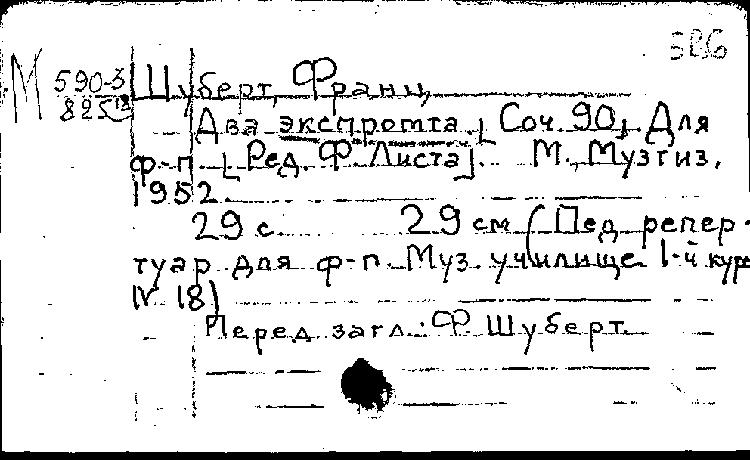 М 590-3 Шуберт, Франц,
825
Два экспромта. [Соч. 90]. Для
ф-п. [Ред. Ф. Листа]. М., Музгиз,
1952.
29 с. 29 см (Пед. репер-
туар для ф-п. Муз. училище 1-й курс
18)
Перед загл.: Ф. Шуберт.